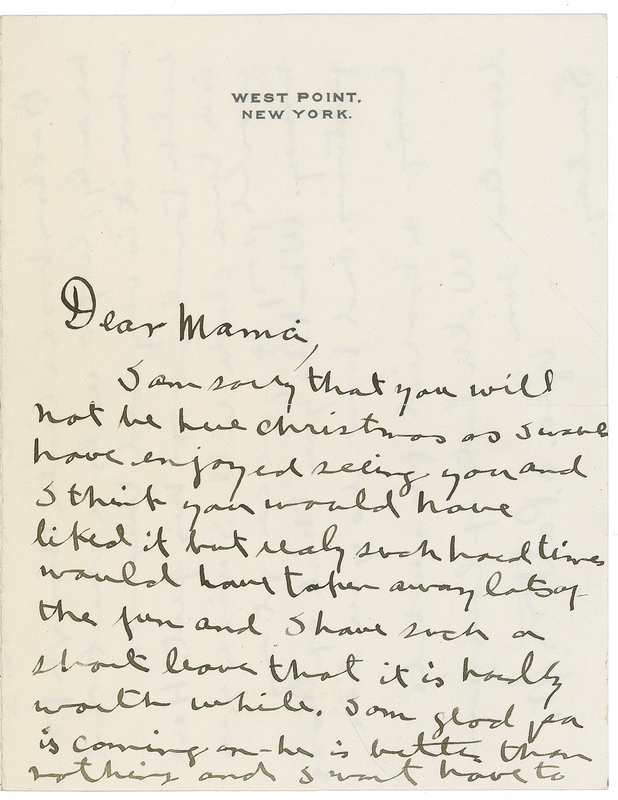 WEST POINT,
NEW YORK.
Dear Mama,
I am sorry that you will
not be here christmas as I would
have enjoyed seeing you and
I think you would have
liked it but realy such hard times
would have taken away lots of
the fun and I have such a
short leave that it is hardly
worth while. I am glad pa
is coming on he is better than
nothing and I wont have to